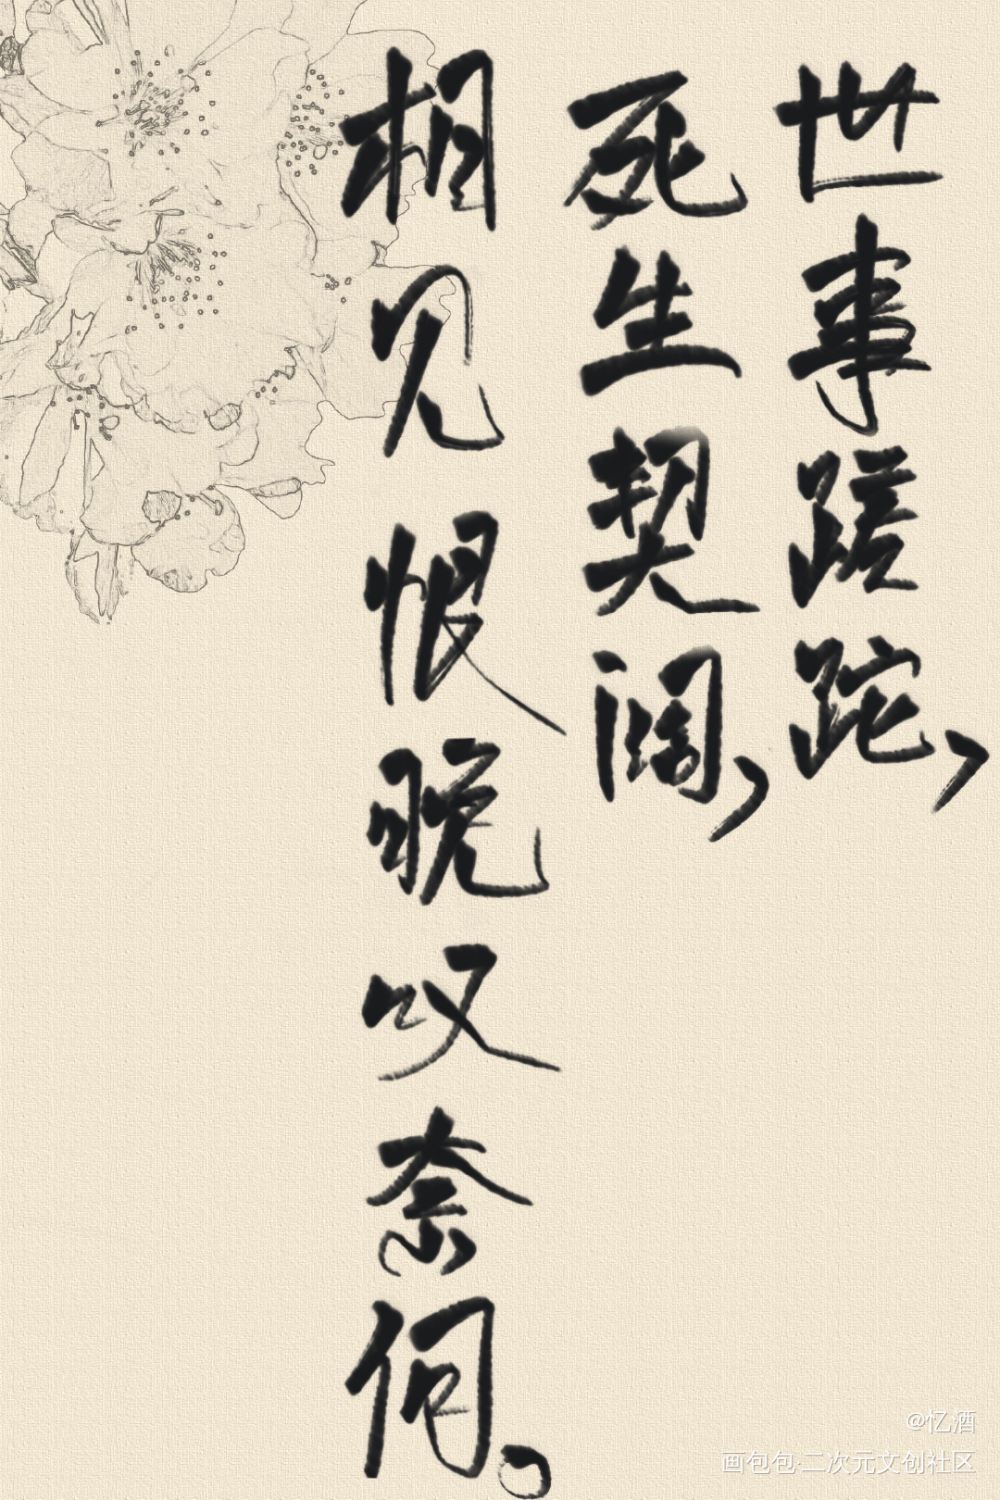 世事蹉跎，
死生契阔，
相见恨晚叹奈何。
@忆酒
画包包·二次元文创社区